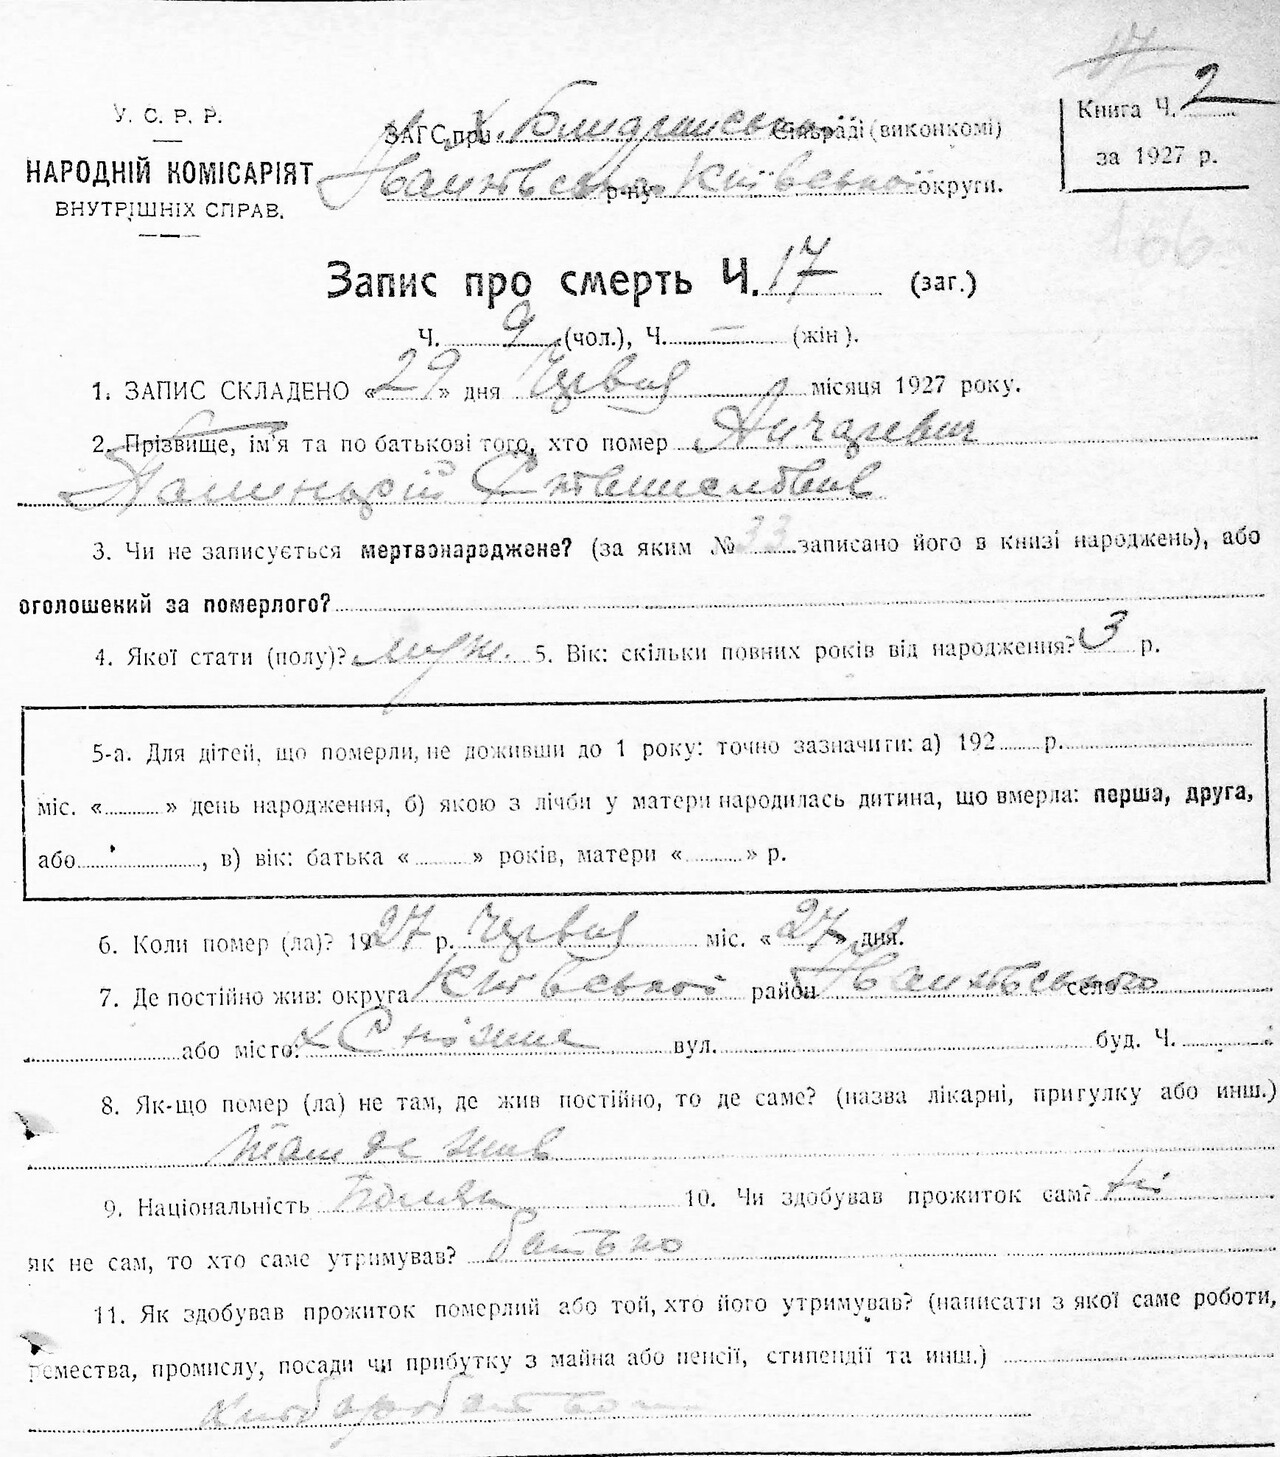 17
У. С. Р. Р.
НАРОДНІЙ КОМІСАРІЯТ
ВНУТРІШНІХ СПРАВ.
ЗАГС при х. Сільраді (виконкомі)
р-ну Київської округи.
Книга Ч. 2
за 1927 р.
166
Запис про смерть Ч. 17 (заг.)
Ч. 9 (чол.), Ч. — (жін).
1. ЗАПИС СКЛАДЕНО «29» дня Червня місяця 1927 року.
2. Прізвище, ім'я та по батькові того, хто помер
3. Чи не записується мертвонароджене? (за яким № 33 записано його в книзі народжень), або
оголошений за померлого?
4. Якої стати (полу)? муж. 5. Вік: скільки повних років від народження? 3 р.
5-а. Для дітей, що померли, не доживши до 1 року: точно зазначити: а) 192 р.
міс. « » день народження, б) якою з лічби у матери народилась дитина, що вмерла: перша, друга,
або , в) вік: батька « » років, матери « » р.
6. Коли помер (ла)? 1927 р. Червня міс. «27» дня.
7. Де постійно жив: округа Київської район село
або місто: х вул. буд. Ч.
8. Як-що помер (ла) не там, де жив постійно, то де саме? (назва лікарні, притулку або инш.)
там де жив
9. Національність Поляк 10. Чи здобував прожиток сам? ні
як не сам, то хто саме утримував? батько
11. Як здобував прожиток померлий або той, хто його утримував? (написати з якої саме роботи,
ремества, промислу, посади чи прибутку з майна або пенсії, стипендії та инш.)